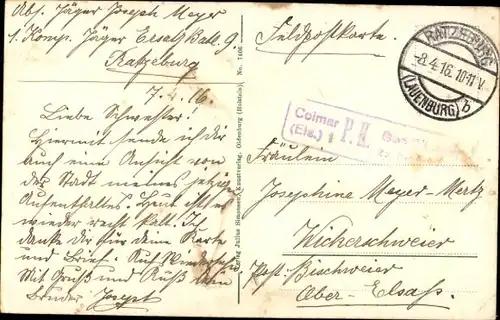 Abs. Jäger Joseph Meyer
1. Komp. Jäger Ersatz Batl. 9.
Ratzeburg
7.4.16.
Liebe Schwester!
Hiermit sende ich dir
auch eine Ansicht von
der Stadt meines jetzigen
Aufenthaltes. Heut ist es
wieder recht kalt. Ich
danke dir für deine Karte
und Brief. Auf Wiedersehn
Mit Gruß und Kuß dein
Bruder Joseph
Verlag Julius Simonsen, Kunstverlag, Oldenburg (Holstein) No. 7406
Feldpostkarte.
RATZEBURG
-8.4.16.10-11V
(LAUENBURG) b
Colmar
(Els.) 1 P. K.
Fräulein
Josephine Meyer-Mertz
Wickerschweier
Post-Bischweier
Ober-Elsaß.